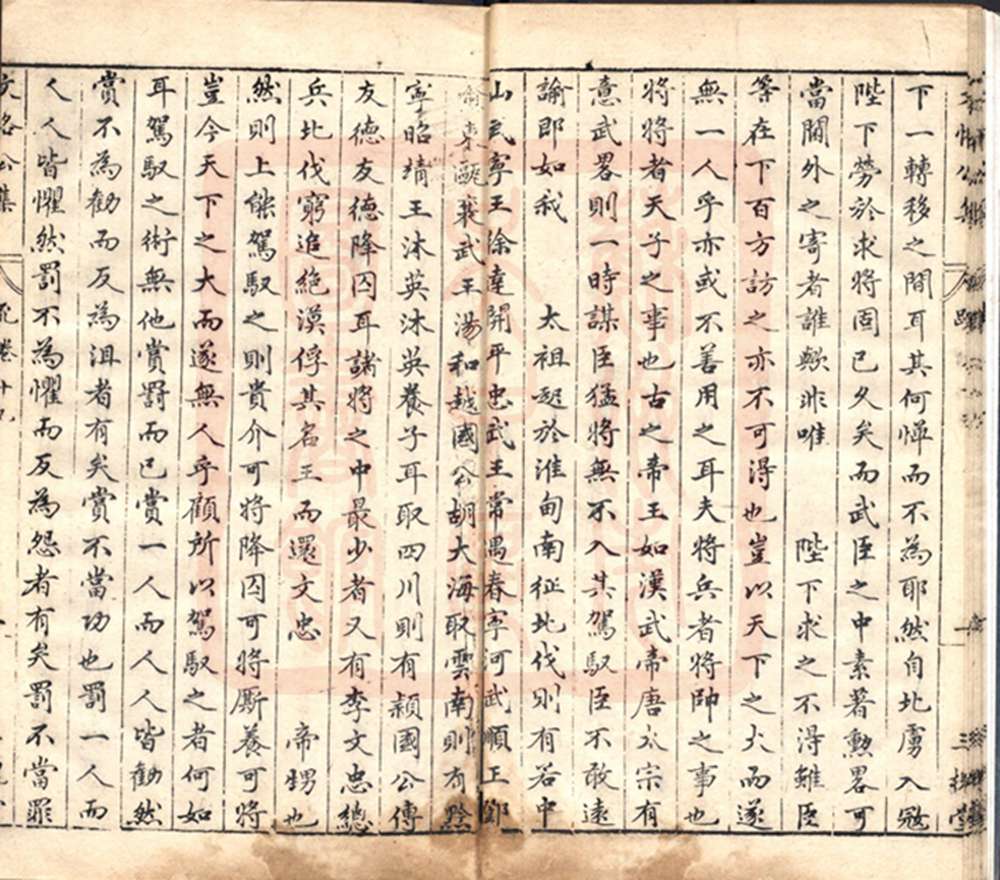 下一轉移之間耳其何憚而不為耶然自北虜入寇
陛下勞於求將固已久矣而武臣之中素著勲畧可
當閫外之寄者誰歟非唯 陛下求之不得雖臣
等在下百方訪之亦不可得也豈以天下之大而遂
無一人乎亦或不善用之耳夫將兵者將帥之事也
將將者天子之事也古之帝王如漢武帝唐太宗有
意武畧則一時謀臣猛將無不入其駕馭臣不敢遠
諭即如我 太祖起於淮甸南征北伐則有若中
山武寧王徐達開平忠武王常遇春寧河武順王鄧
愈東甌襄武王湯和越國公胡大海取雲南則有黔
寧昭靖王沐英沐英養子耳取四川則有潁國公傅
友德友德降囚耳諸將之中最少者又有李文忠總
兵北伐窮追絕漠俘其名王而還文忠 帝甥也
然則上能駕馭之則貴介可將降囚可將厮養可將
豈今天下之大而遂無人乎顧所以駕馭之者何如
耳駕馭之術無他賞罰而已賞一人而人人皆勸然
賞不為勸而反為沮者有矣賞不當功也罰一人而
人人皆懼然罰不為懼而反為怨者有矣罰不當罪